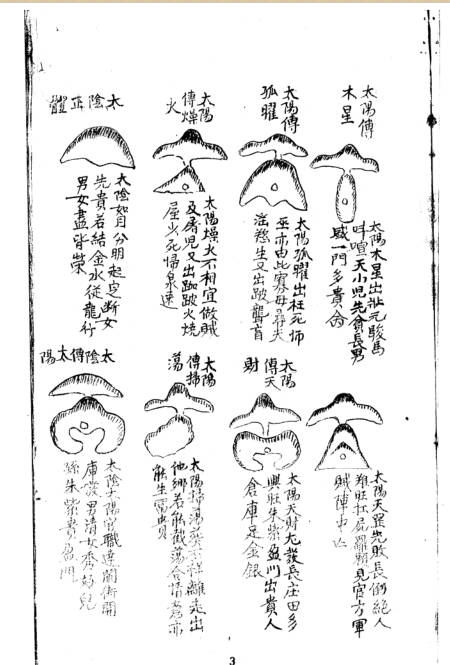 太陽傳
木星
太陽木星出壯元駿馬
叫喧天小兒先貪長男
感一門多貴
太陽傳
狐曜
太陽狐曜出枉死師
巫亦由此寡母尋夫
淫慾生又出跛聾盲
太陽
傳燥
火
太陽燥火不相宜做賊
及屠兒又出跏跛火燒
屋少死歸泉速
太陰正體
太陰如月分明起定断女
先貴若結金水従龍行
男女盡皆榮
太陽天罡先敗長倒絕人
难旺扛屍羅賴見官方軍
賊陣中亡
太陽
傳天
財
太陽天財尤發長庄田多
興旺朱紫盈門出貴人
倉庫足金銀
太陽
傳掃
蕩
太陽掃蕩發不祥離走出
他鄉若能截蕩合情意亦
能生冨貴
太陰傳太陽
太陰太陽官職連開
庫發男清女秀好兒
孫朱紫貴盈門
3